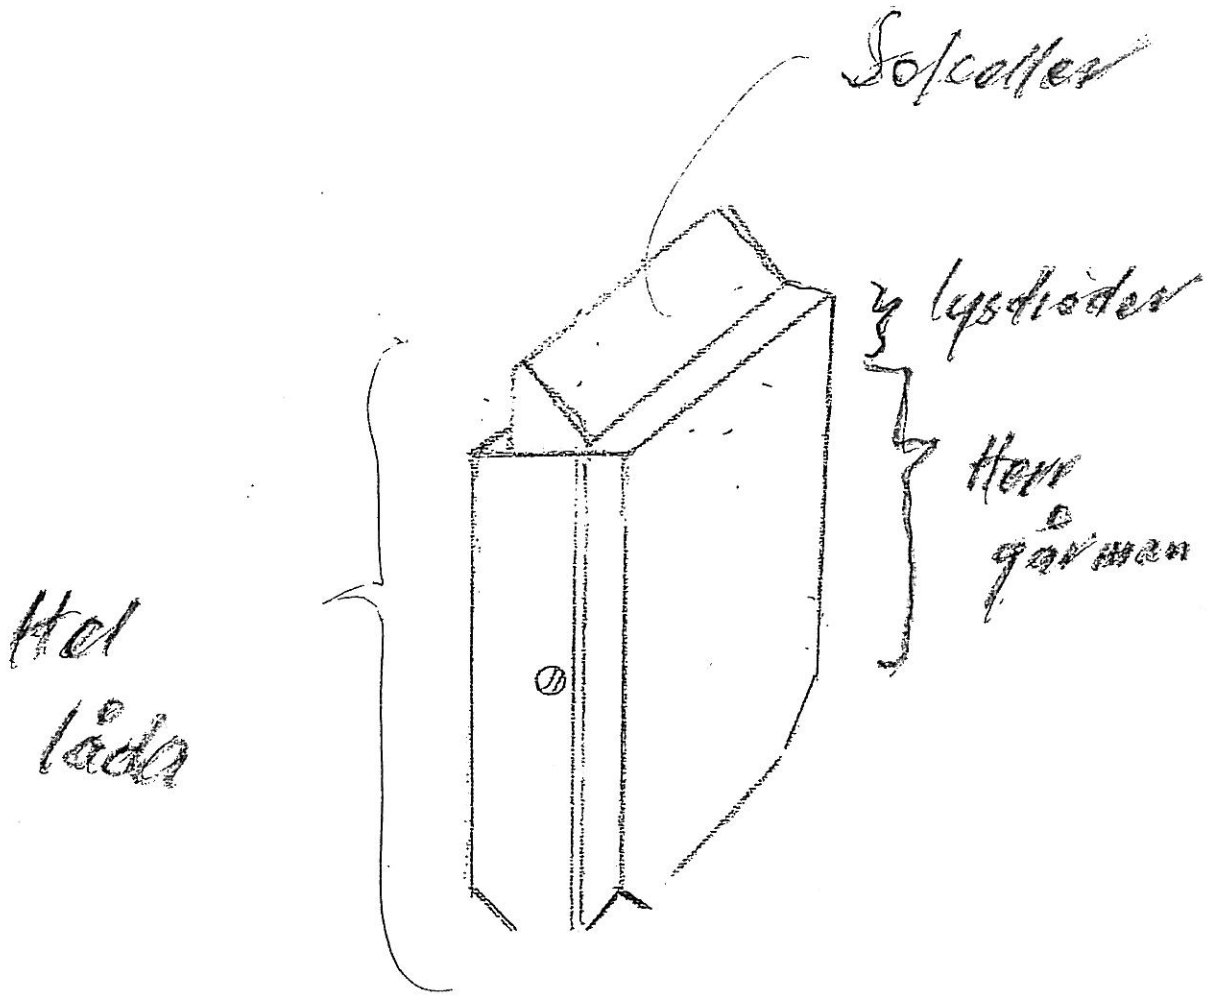 Solceller
lysdioder
Herr
gårman
Hel
låda